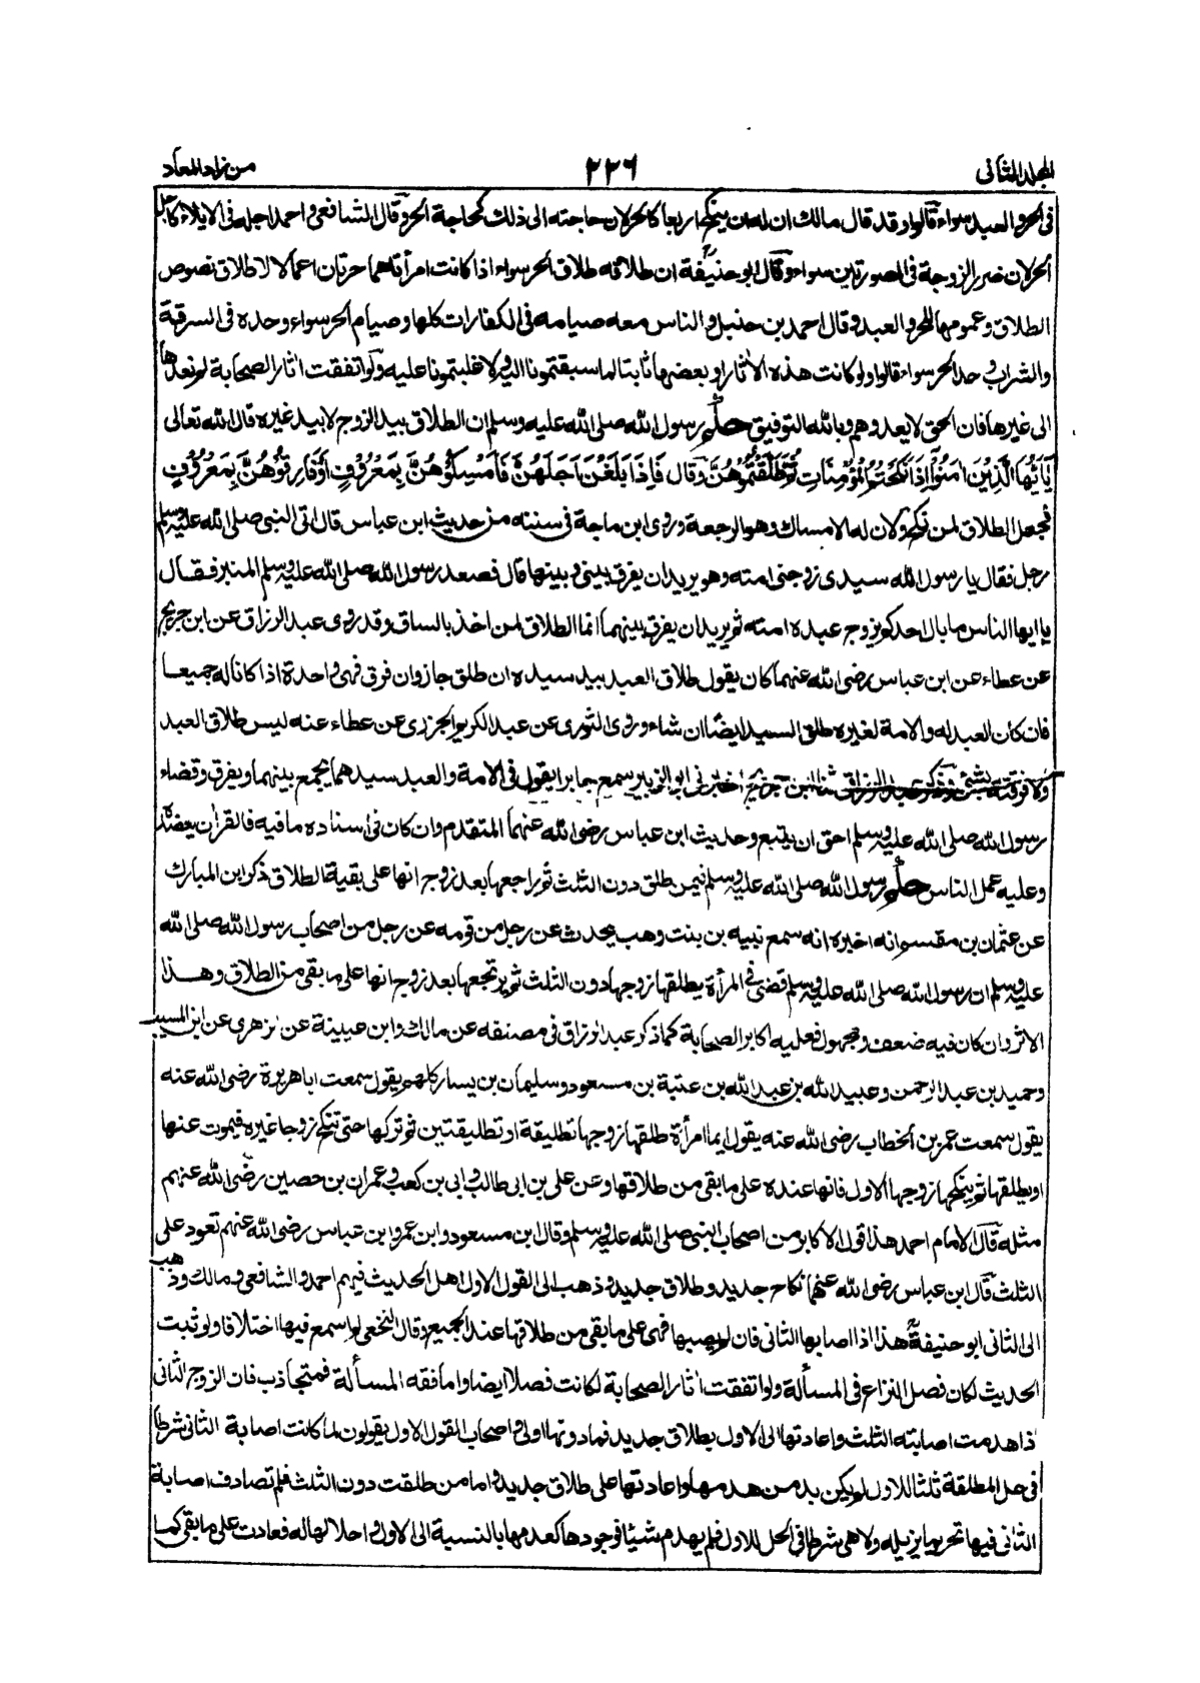 المجلد الثانی
٢٢٦
من زاد المعاد
فی الحر والعبد سواء قالوا وقد قال مالك ان له ان ینکح اربعا کالحر لان حاجته الی ذلك کحاجة الحر وقال الشافعی واحمد اجله فی الایلاء کاجل
الحر لان ضرر الزوجة فی الصورتین سواء وقال ابو حنیفة ان طلاقه طلاق الحر سواء اذا کانت امرأتاهما حرتان اعمالا لاطلاق نصوص
الطلاق وعمومها للحر والعبد وقال احمد بن حنبل والناس معه صیامه فی الکفارات کلها وصیام الحر سواء وحده فی السرقة
والشراب وحد الحر سواء قالوا ولو کانت هذه الاٰثار او بعضها ثابتا لما سبقتمونا الیه ولا غلبتمونا علیه ولو اتفقت اٰثار الصحابة لم نعدها
الی غیرها فان الحق لا یعدوهم وبالله التوفیق حکم رسول الله صلی الله علیه وسلم ان الطلاق بید الزوج لا بید غیره قال الله تعالی
یَآ اَیُّهَا الَّذِیْنَ اٰمَنُوْآ اِذَا نَکَحْتُمُ الْمُؤْمِنَاتِ ثُمَّ طَلَّقْتُمُوْهُنَّ وقال فَاِذَا بَلَغْنَ اَجَلَهُنَّ فَاَمْسِکُوْهُنَّ بِمَعْرُوْفٍ اَوْ فَارِقُوْهُنَّ بِمَعْرُوْفٍ
فجعل الطلاق لمن نکح ولان له الامساك وهو الرجعة وروی ابن ماجة فی سننه من حدیث ابن عباس قال اتی النبی صلی الله علیه وسلم
رجل فقال یا رسول الله سیدی زوجنی امته وهو یرید ان یفرق بینی وبینها قال فصعد رسول الله صلی الله علیه وسلم المنبر فقال
یا ایها الناس ما بال احدکم یزوج عبده امته ثم یرید ان یفرق بینهما انما الطلاق لمن اخذ بالساق وقد روی عبد الرزاق عن ابن جریج
عن عطاء عن ابن عباس رضی الله عنهما کان یقول طلاق العبد بید سیده ان طلق جاز وان فرق فهی واحدة اذا کانا له جمیعا
فان کان العبد له والامة لغیره طلق السید ایضا ان شاء وروی الثوری عن عبد الکریم الجزری عن عطاء عنه لیس طلاق العبد
ولا فرقته بشیٔ وذکر عبد الرزاق ثنا ابن جریج اخبرنی ابو الزبیر سمع جابرا یقول فی الامة والعبد سیدهما یجمع بینهما ویفرق وقضاء
رسول الله صلی الله علیه وسلم احق ان یتبع وحدیث ابن عباس رضی الله عنهما المتقدم وان کان فی اسناده ما فیه فالقراٰن یعضده
وعلیه عمل الناس حکم رسول الله صلی الله علیه وسلم فیمن طلق دون الثلث ثم راجعها بعد زوج انها علی بقیة الطلاق ذکر ابن المبارك
عن عثمان بن مقسم انه اخبره انه سمع نبیه بن بنت وهب یحدث عن رجل من قومه عن رجل من اصحاب رسول الله صلی الله
علیه وسلم ان رسول الله صلی الله علیه وسلم قضی فی المرأة یطلقها زوجها دون الثلث ثم یرتجعها بعد زوج انها علی ما بقی من الطلاق وهذا
الاثر وان کان فیه ضعف ومجهول فعلیه اکابر الصحابة کما ذکر عبد الرزاق فی مصنفه عن مالك وابن عیینة عن الزهری عن ابن المسیب
وحمید بن عبد الرحمن وعبید الله بن عبد الله بن عتبة بن مسعود وسلیمان بن یسار کلهم یقول سمعت ابا هریرة رضی الله عنه
یقول سمعت عمر بن الخطاب رضی الله عنه یقول ایما امرأة طلقها زوجها تطلیقة او تطلیقتین ثم ترکها حتی تنکح زوجا غیره فیموت عنها
او یطلقها ثم ینکحها زوجها الاول فانها عنده علی ما بقی من طلاقها وعن علی بن ابی طالب وابی بن کعب وعمران بن حصین رضی الله عنهم
مثله قال الامام احمد هذا قول الاکابر من اصحاب النبی صلی الله علیه وسلم وقال ابن مسعود وابن عمر وابن عباس رضی الله عنهم تعود علی
الثلث قال ابن عباس رضی الله عنهما نکاح جدید وطلاق جدید وذهب الی القول الاول اهل الحدیث فیهم احمد والشافعی ومالك وذهب
الی الثانی ابو حنیفة هذا اذا اصابها الثانی فان لم یصبها فهی علی ما بقی من طلاقها عند الجمیع وقال النخعی لم اسمع فیها اختلافا ولو ثبت
الحدیث لکان فصل النزاع فی المسألة ولو اتفقت اٰثار الصحابة لکانت فصلا ایضا واما فقه المسألة فمتجاذب فان الزوج الثانی
اذا هدمت اصابته الثلث واعادتها الی الاول بطلاق جدید فما دونها اولی واصحاب القول الاول یقولون لما کانت اصابة الثانی شرطا
فی حل المطلقة ثلثا للاول لم یکن بد من هدمها واعادتها علی طلاق جدید واما من طلقت دون الثلث فلم تصادف اصابة
الثانی فیها تحریما یزیله ولا هی شرط فی الحل للاول فلم یهدم شیئا فوجودها کعدمها بالنسبة الی الاول واحلالها له فعادت علی ما بقی کما